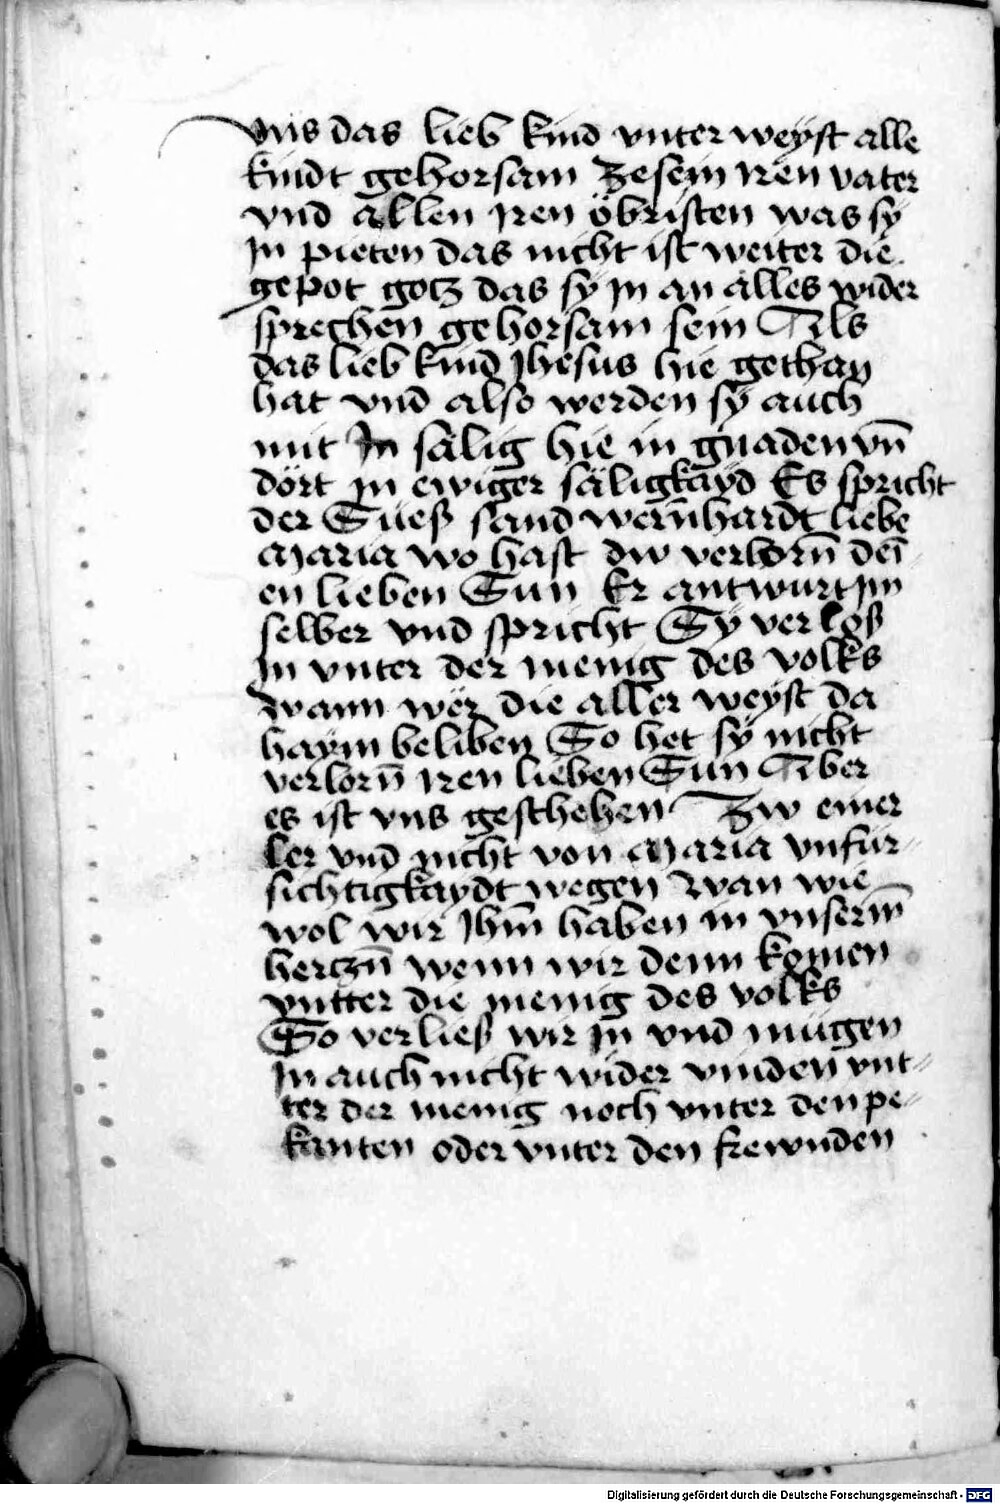 vns das lieb kind vnter weyst alle
kindt gehorsam zesein iren vater
vnd allen iren öbristen was sy
In pieten das nicht ist weiter die
gepot gotz das sy In an alles wider
sprechen gehorsam sein Als
das lieb kind Jhesus hie gethan
hat vnd also werden sy auch
mit In sälig hie in gnaden vn̄
dört in ewiger säligkayd Es spricht
der Süeß sand wernhardt liebe
Maria wo hast dw verlorn̄ dei͂
en lieben Sun Er antwurt Im
selber vnd spricht Sy verloß
In vnter der menig des volks
wann wër die aller weyst da
haym beliben So het sy nicht
verlorn̄ iren lieben Sun Aber
es ist vns geschehen Zw einer
ler vnd nicht von Maria vnfür-
sichtigkaydt wegen wan wie
wol wir Jhm̄ haben in vnserm̄
hertzn̄ wenn wir denn komen
vntter die menig des volks
So verließ wir In vnd mügen
In auch nicht wider vinden vnt-
ter der menig noch vnter den pe-
kanten oder vnter den frewnden
Digitalisierung gefördert durch die Deutsche Forschungsgemeinschaft - DFG